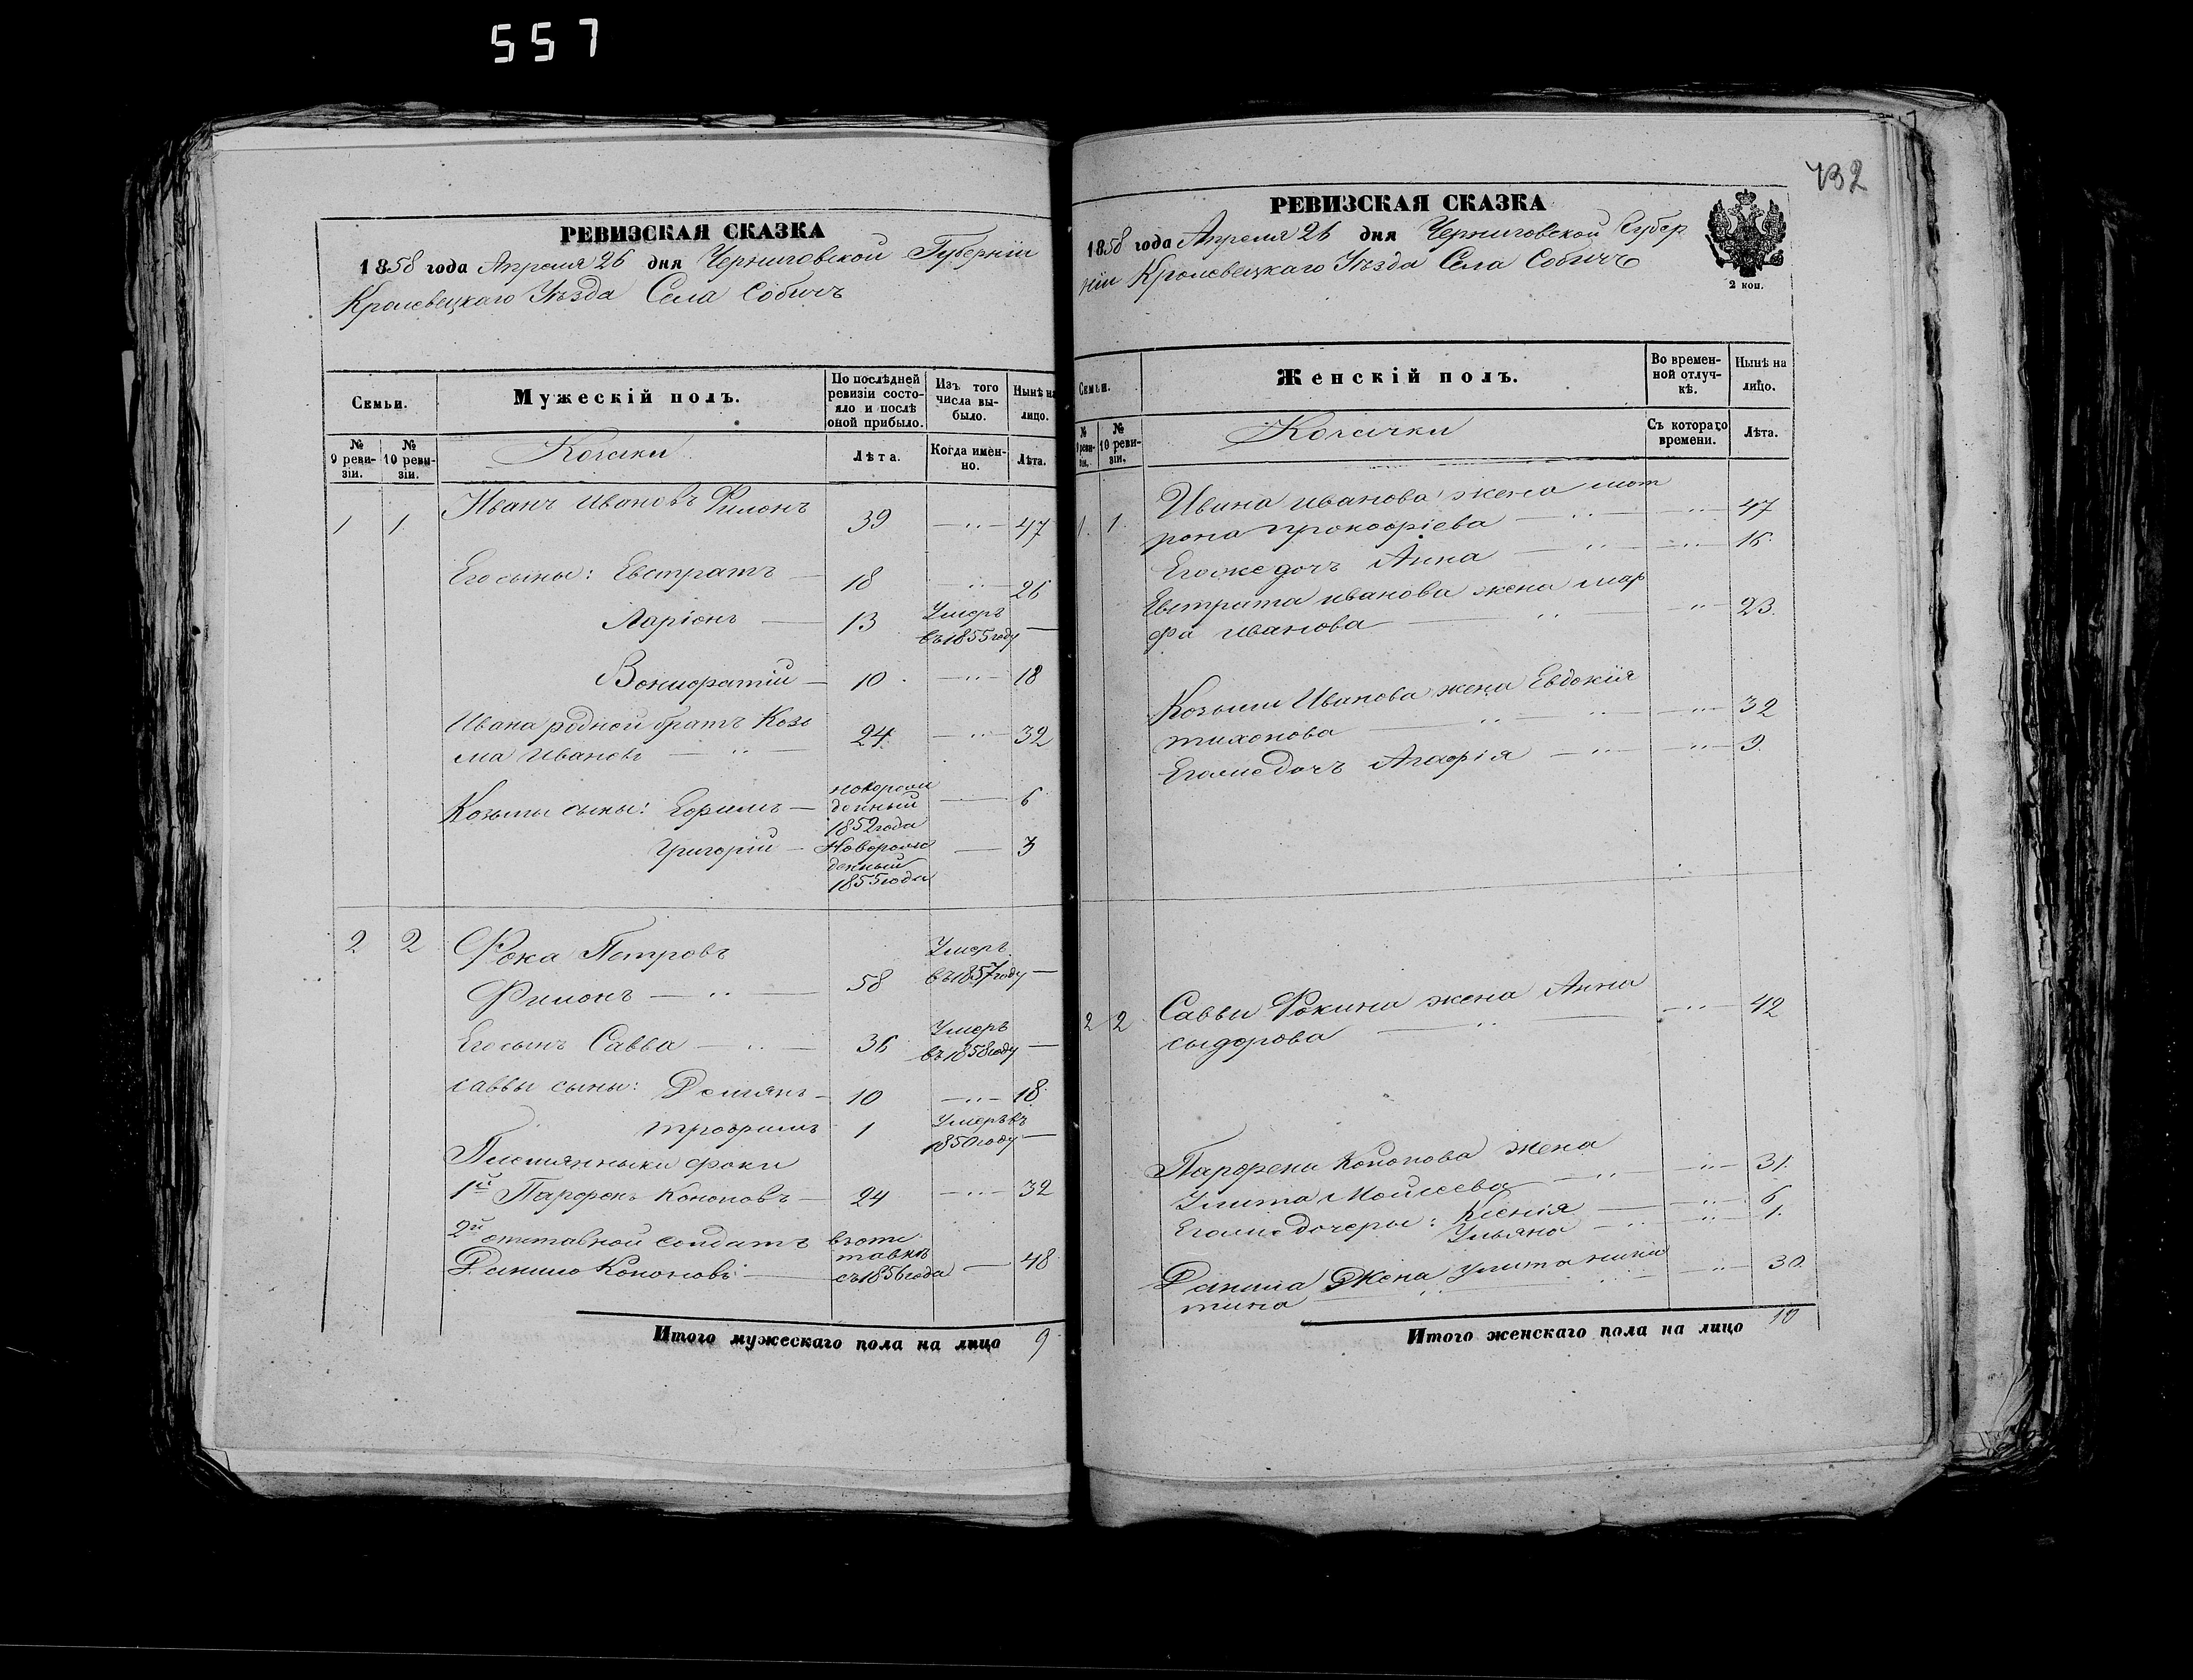 557
РЕВИЗСКАЯ СКАЗКА
1858 года Апреля 26 дня Черниговской Губерніи
Кролевецкаго Уѣзда Села Собичъ
Семьи.
Мужескій полъ.
По послѣдней ревизіи состояло и послѣ оной прибыло.
Изъ того числа выбыло.
Нынѣ на лицо.
№ 9 ревизіи.
№ 10 ревизіи.
Козаки
Лѣта.
Когда именно.
Лѣта.
1 1 Иванъ Ивановъ Филонъ 39 47
Его сыны: Евстратъ 18 26
Ларіонъ 13 Умеръ въ 1855 году
10 18
Ивана родной братъ Козь
ма Ивановъ 24 32
Козьмы сыны: Ефимъ новорож
денный
1852 года 6
Григорій Новорож
денный
1855 года 3
2 2 Фока Петровъ
Филонъ 58 Умеръ
въ 1857 году
Его сынъ Савва 36 Умеръ
въ 1858 году
Саввы сыны: Демянъ 10 18
Трофимъ 1 Умеръ въ
1850 году
Племянныки Фоки
1й Парфенъ Кононовъ 24 32
2й отставной солдатъ въ отс
тавкѣ
Данило Кононовъ съ 1856 года 48
Итого мужескаго пола на лицо 9
432
РЕВИЗСКАЯ СКАЗКА
1858 года Апреля 26 дня Черниговской Губер
ніи Кролевецкаго Уѣзда Села Собичъ
2 коп.
Семьи.
Женскій полъ.
Во временной отлучкѣ.
Нынѣ на лицо.
№ 9 ревизіи.
№ 10 ревизіи.
Козачки
Съ котораго времени.
Лѣта.
1 1 Ивана Иванова жена Мот
рона Прокофіева 47
Его же дочь Анна 15
Евстрата Иванова жена Мар
фа Иванова 23
Козьмы Иванова жена Евдокія
Тихонова 32
Его же дочь Агафія 9
2 2 Саввы Фокина жена Анна
Сыдорова 42
Парфена Кононова жена
Улита Моисеева 31
Его же дочеры: Ксенія 6
Ульяна 1
Данила Жена Улита Ники
тина 30
Итого женскаго пола на лицо 10